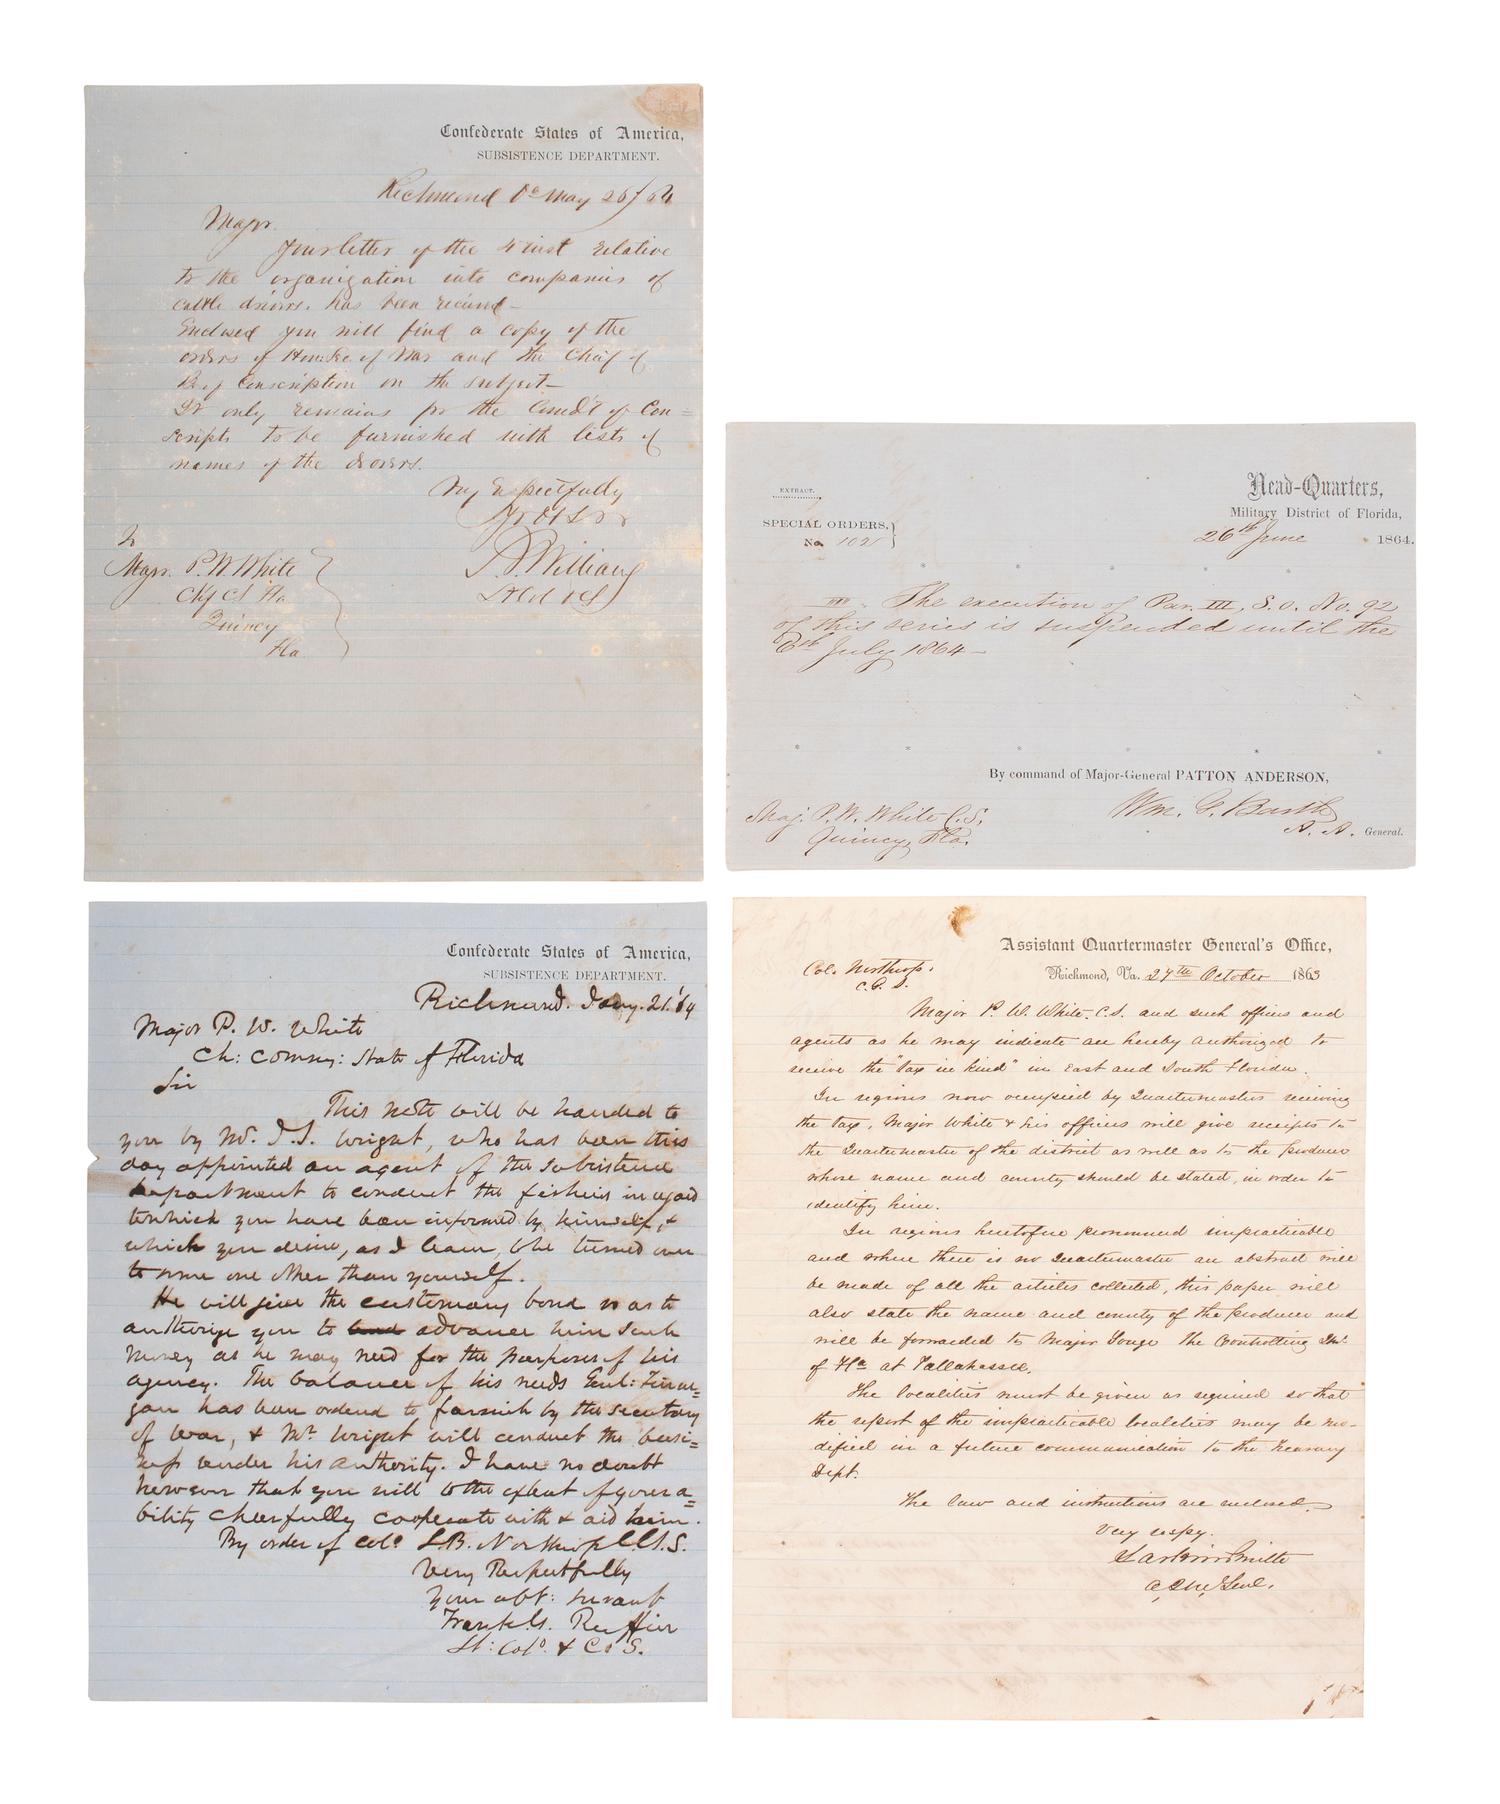 Confederate States of America,
SUBSISTENCE DEPARTMENT.
Richmond Va May 26/64
Major
Your letter of the 4 inst relative
to the organization into companies of
cattle drivers, has been received—
Enclosed you will find a copy of the
orders of Hon: Sec of War and the Chief of
Bu of Conscription on the subject—
It only remains for the Comd't of Con=
scripts to be furnished with lists of
names of the drovers.
Very Respectfully
Yr Ob Svt
Williams
To
Major. P. W. White
Chf CS Fla
Quincy
Fla
EXTRACT.
Head-Quarters,
Military District of Florida,
SPECIAL ORDERS,
No.
26th June 1864.
III. The execution of Par. III, S.O. No. 92
of this series is suspended until the
6th July 1864—
By command of Major-General PATTON ANDERSON,
Wm. G. Barth
A. A. General.
Maj. P. W. White C.S.
Quincy, Fla.
Confederate States of America,
SUBSISTENCE DEPARTMENT.
Richmond. Jany. 21. '64
Major P. W. White
Ch: Commy: State of Florida
Sir
This note will be handed to
you by Mr. I. S. Wright, who has been this
day appointed an agent of the Subsistence
Department to conduct the fisheries in regard
to which you have been informed by himself, &
which you desire, as I learn, to be turned over
to some one other than yourself.
He will give the customary bond so as to
authorize you to advance him such
money as he may need for the purposes of his
agency. The balance of his needs Genl: Finne=
gan has been ordered to furnish by the Secretary
of War, & Mr. Wright will conduct the busi=
ness under his authority. I have no doubt
however that you will to the extent of your a=
bility cheerfully cooperate with & aid him.
By order of Colo L. B. Northrop C.G.S.
Very Respectfully
Your obt: servant
Frank G. Ruffin
Lt: Colo. & C. S.
Assistant Quartermaster General's Office,
Richmond, Va. 27th October 1863
Col. Northrop.
C. G. S.
Major P. W. White. C.S. and such officers and
agents as he may indicate are hereby authorized to
receive the "tax in kind" in East and South Florida.
In regions now occupied by Quartermasters receiving
the tax, Major White & his officers will give receipts to
the Quartermaster of the district as well as to the producer
whose name and county should be stated, in order to
identify him.
In regions heretofore pronounced impracticable
and where there is no Quartermaster an abstract will
be made of all the articles collected, this paper will
also state the name and county of the producer and
will be forwarded to Major Gouge the Controlling Qr
of Fla at Tallahassee.
The localities must be given as required so that
the report of the impracticable localities may be mo-
dified in a future communication to the Treasury
Dept.
The law and instructions are enclosed.
Very respy.
Larkin Smith
A. Q. M. Genl.